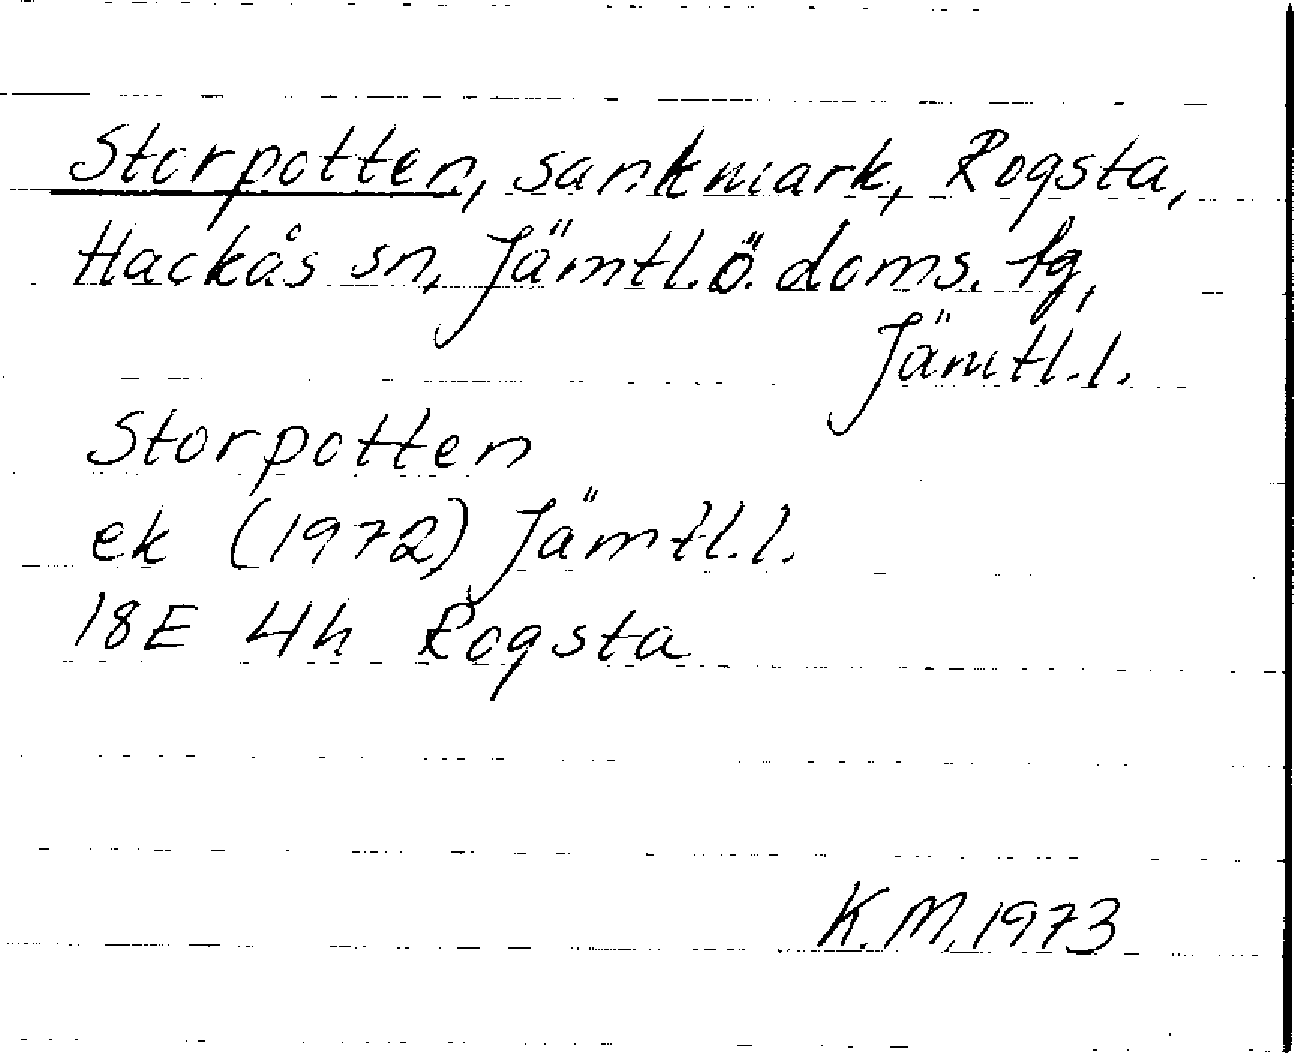 Storpotten, sankmark, Rogsta,
Hackås sn, Jämtl.ö.doms.tg,
Jämtl.l.
Storpotten
ek (1972) Jämtl.l.
18E 4h Rogsta
K.M.1973